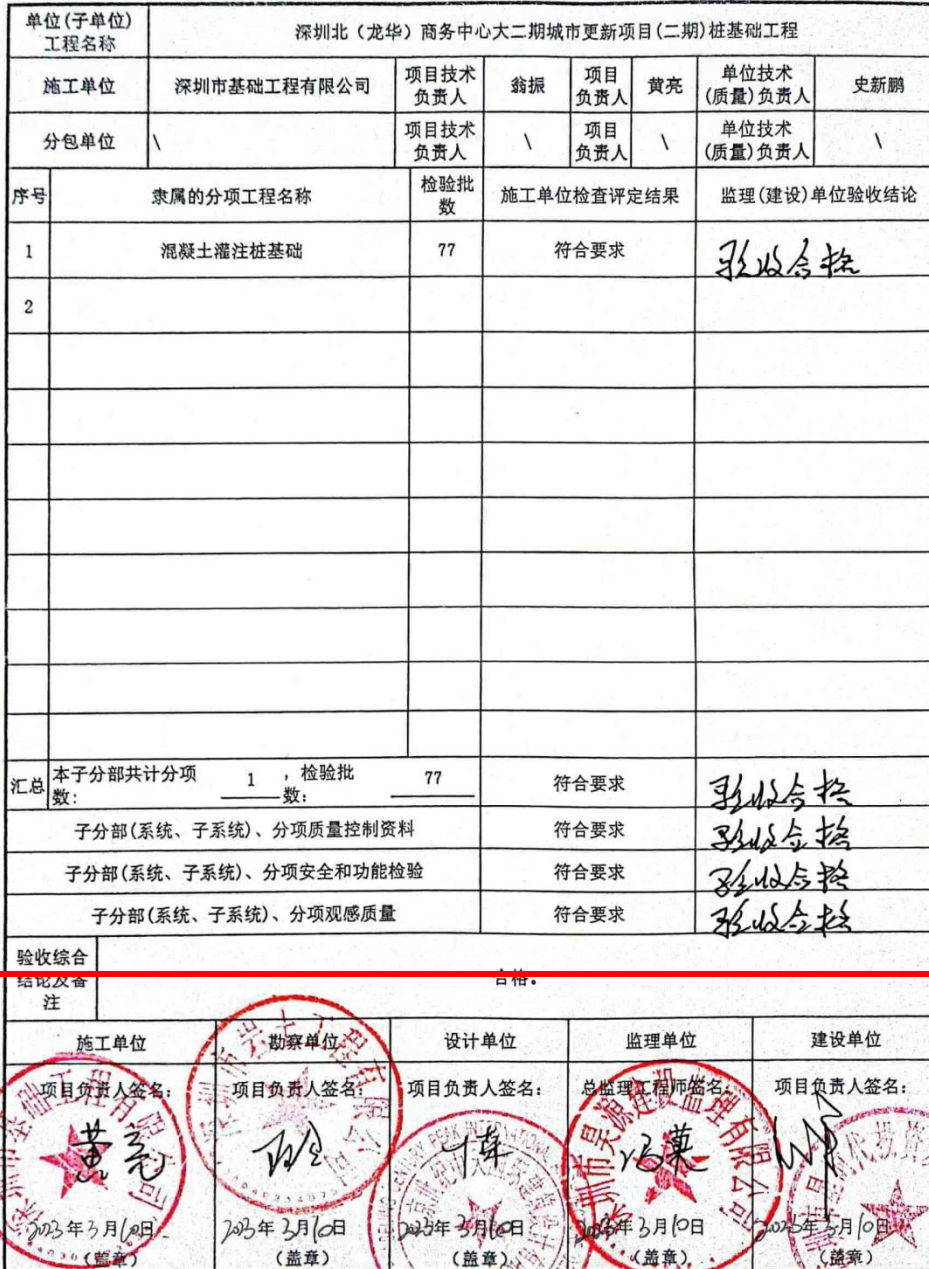 单位(子单位)工程名称 深圳北（龙华）商务中心大二期城市更新项目(二期)桩基础工程
施工单位 深圳市基础工程有限公司 项目技术负责人 翁振 项目负责人 黄亮 单位技术(质量)负责人 史新鹏
分包单位 \ 项目技术负责人 \ 项目负责人 \ 单位技术(质量)负责人 \
序号 隶属的分项工程名称 检验批数 施工单位检查评定结果 监理(建设)单位验收结论
1 混凝土灌注桩基础 77 符合要求 验收合格
2
汇总 本子分部共计分项数: 1 ，检验批数: 77 符合要求 验收合格
子分部(系统、子系统)、分项质量控制资料 符合要求 验收合格
子分部(系统、子系统)、分项安全和功能检验 符合要求 验收合格
子分部(系统、子系统)、分项观感质量 符合要求 验收合格
验收综合结论及备注 合格。
施工单位 勘察单位 设计单位 监理单位 建设单位
项目负责人签名: 项目负责人签名: 项目负责人签名: 总监理工程师签名: 项目负责人签名:
黄亮
2023年3月10日 2023年3月10日 2023年3月10日 2023年3月10日 2023年3月10日
(盖章) (盖章) (盖章) (盖章) (盖章)